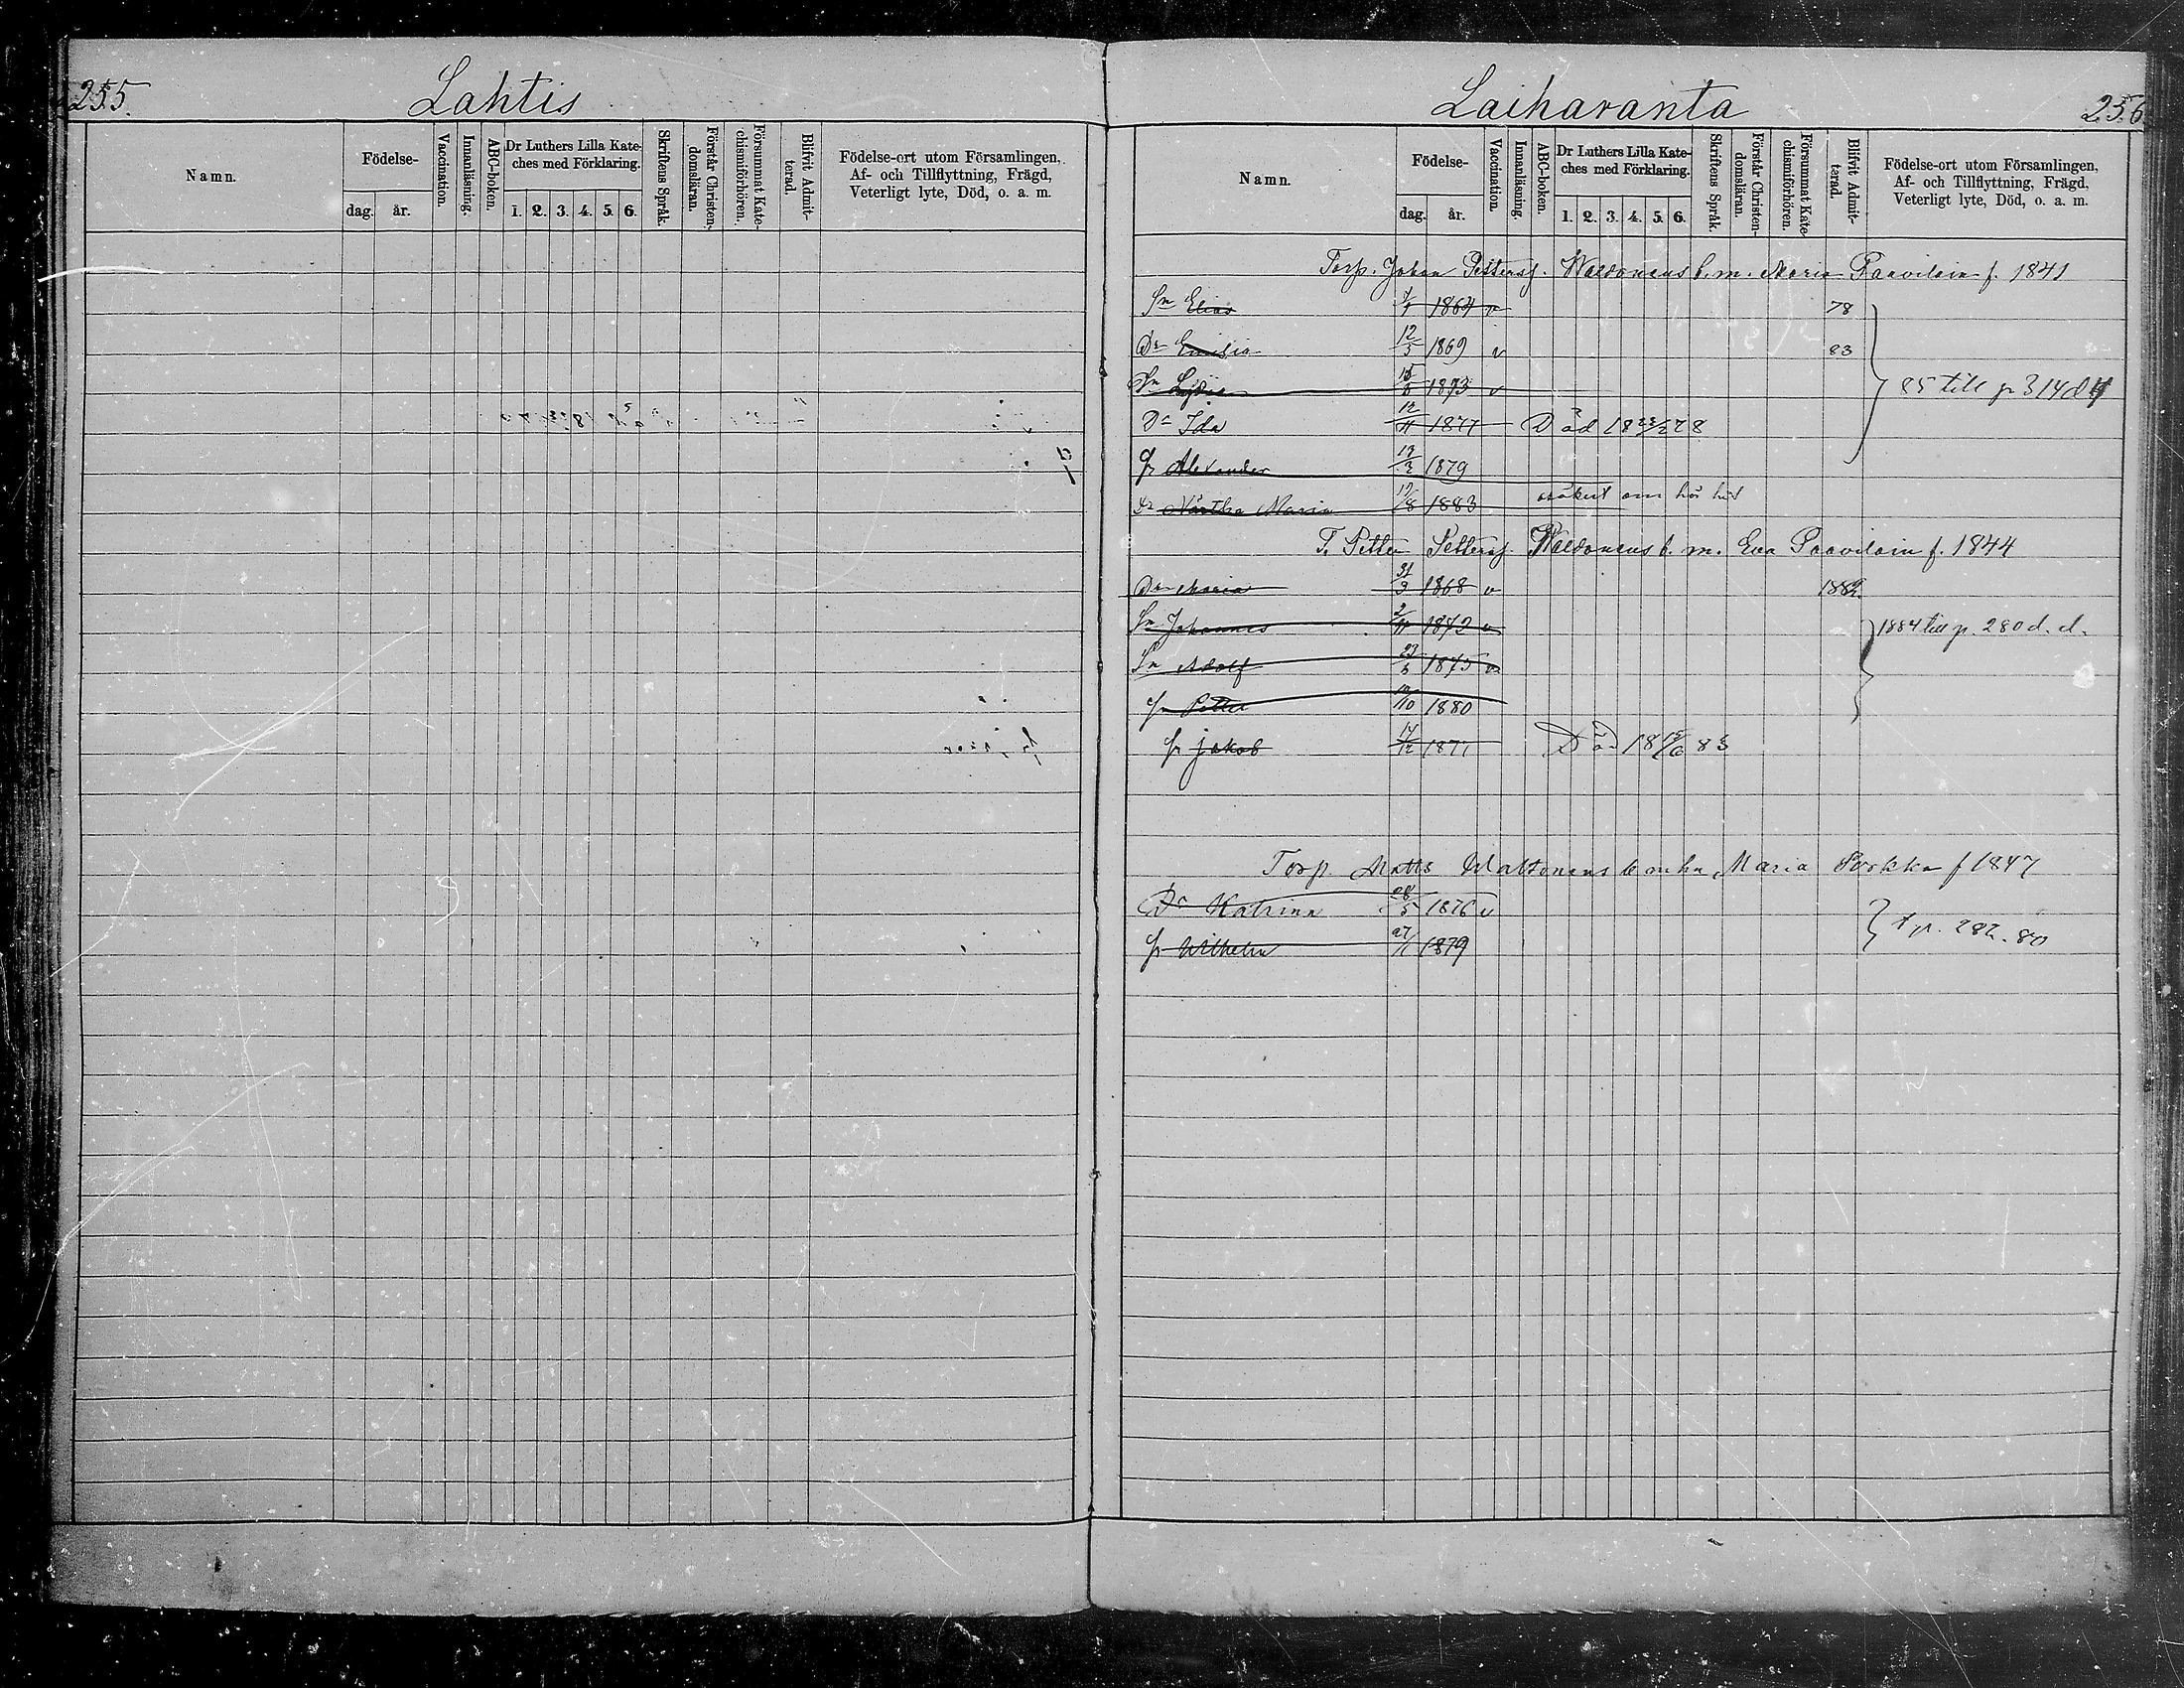 255.
Lahtis
Namn.
Födelse-
dag.
år.
Vaccination.
Innanläsning.
ABC-boken.
Dr Luthers Lilla Kate-
ches med Förklaring.
1. 2. 3. 4. 5. 6.
Skriftens Språk.
Förstår Christen-
domsläran.
Försummat Kate-
chismiförhören.
Blifvit Admit-
terad.
Födelse-ort utom Församlingen,
Af- och Tillflyttning, Frägd,
Veterligt lyte, Död, o. a. m.
Laiharanta
256
Namn.
Födelse-
dag.
år.
Vaccination.
Innanläsning.
ABC-boken.
Dr Luthers Lilla Kate-
ches med Förklaring.
1. 2. 3. 4. 5. 6.
Skriftens Språk.
Förstår Christen-
domsläran.
Försummat Kate-
chismiförhören.
Blifvit Admit-
terad.
Födelse-ort utom Församlingen,
Af- och Tillflyttning, Frägd,
Veterligt lyte, Död, o. a. m.
Torp. Johan Pettersf. b. m. Maria Paavilain f. 1841
Sn Elias 1864 v 78
Dr 12/5 1869 v 83
1873 v 85 till p 314
Dr Ida 12/11 1877 Död 18 23/2 78
Alexander 1879
Dr Maria 1883 om
T. Petter Pettersf. b. m. Eva Paavilain f. 1844
Dr Maria 31/3 1868 v 1882
Sn Johannes 2/11 1872 v 1884 till p. 280 d. d.
Sn Adolf 1875 v
Petter 1880
Jakob 17/12 1877 Död 83
Torp. Matts b m hu Maria Porkka f 1847
Dr Katrina 28/5 1876 v
Wilhelm 27/1 1879 t p. 282. 80